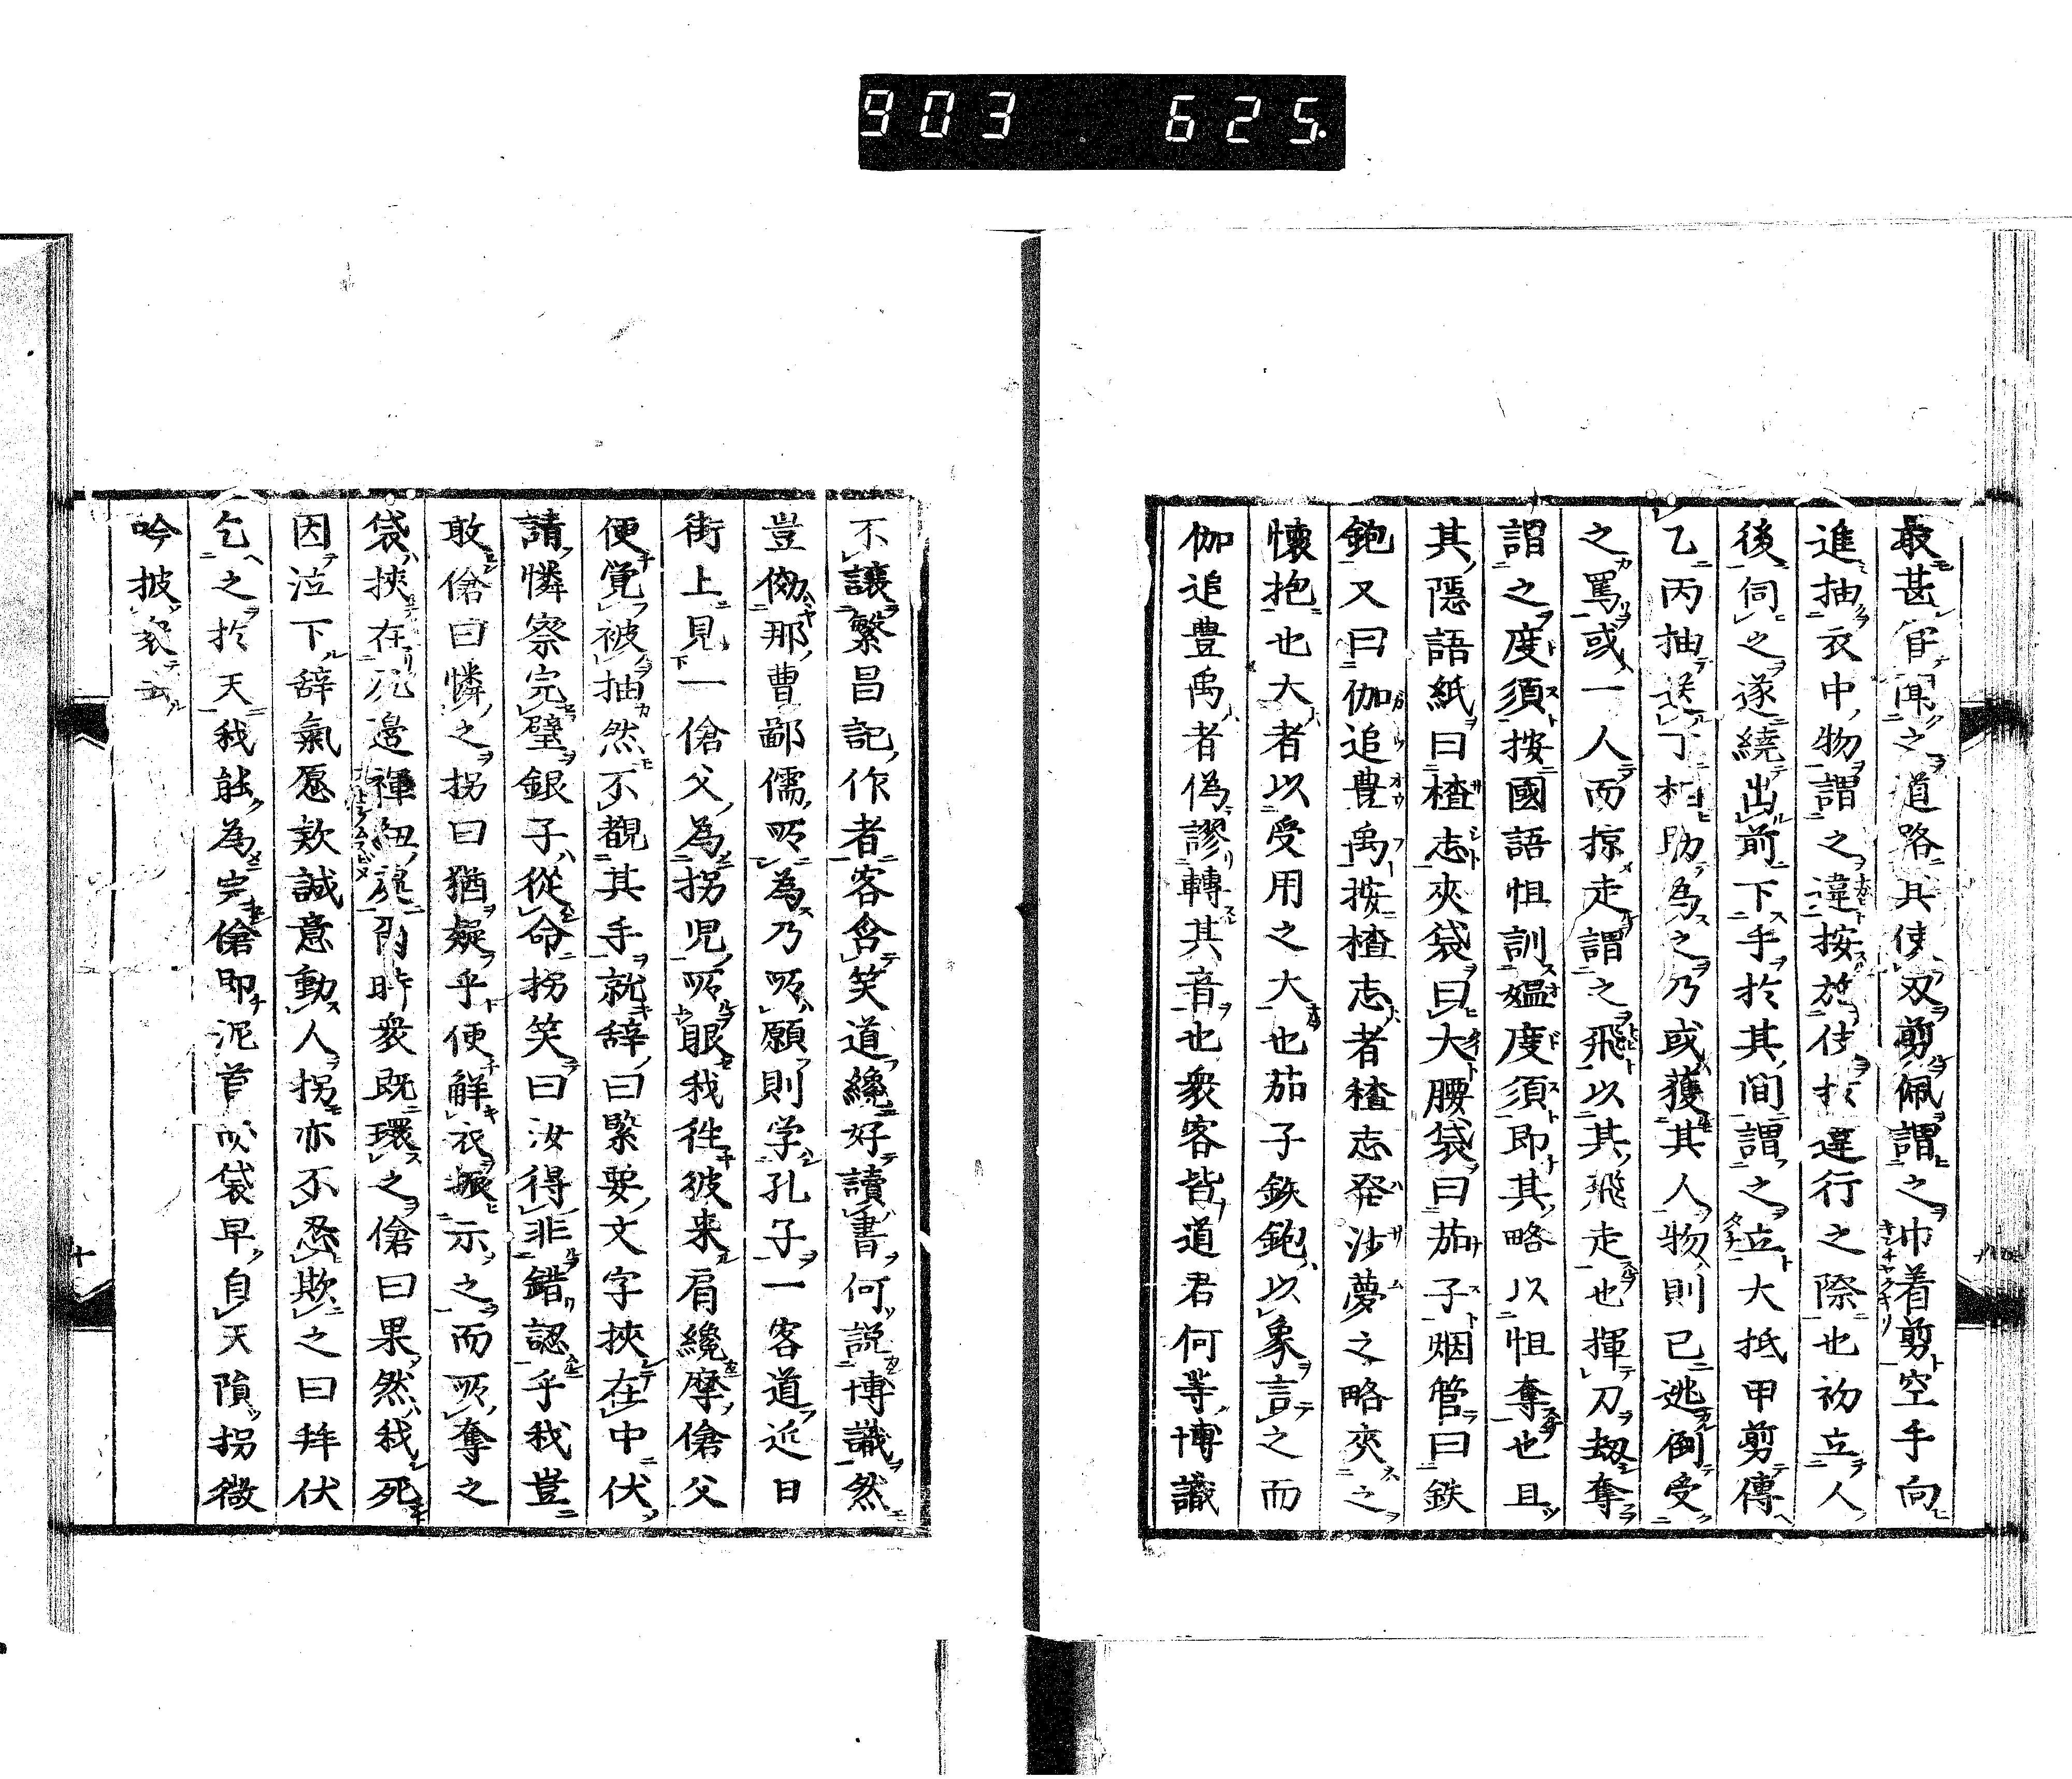 903 625
最甚旨聞之道路其使刃剪佩謂之巾着剪空手向
進抽衣中物謂之違按於使於違行之際也初立人
後伺之遂繞出前下手於其間謂之立大抵甲剪傳
乙丙抽送丁相助為之乃或獲其人物則已逃倒受
之罵或一人而掠走謂之飛以其飛走也揮刀劫奪
謂之度須按國語怚訓媼度須即其略以怚奪也且
其隱語紙曰楂志夾袋曰大腰袋曰茄子烟管曰鉄
鉋又曰伽追豊禹按楂志者楂志発沙夢之略夾之
懷抱也大者以受用之大也茄子鉄鉋以象言之而
伽追豊禹者偽謬轉其音也衆客皆道君何等博識
不讓繁昌記作者客含笑道纔好讀書何説博識然
豈倣那曹鄙儒所為乃所願則学孔子一客道近日
街上見一傖父為拐児所眼我徃彼来肩纔摩傖父
便覚被抽然不覩其手就辞曰緊要文字挾在中伏
請憐察完璧銀子從命拐笑曰汝得非錯認乎我豈
敢傖曰憐之拐曰猶疑乎便解衣振示之而所奪之
袋挾在邊褌間時衆既環之傖曰果然我死
因泣下辞氣愿欵誠意動人拐亦不忍欺之曰拜伏
乞之於天我能為完傖即泥首以袋早自天隕拐微
吟披衮去
十